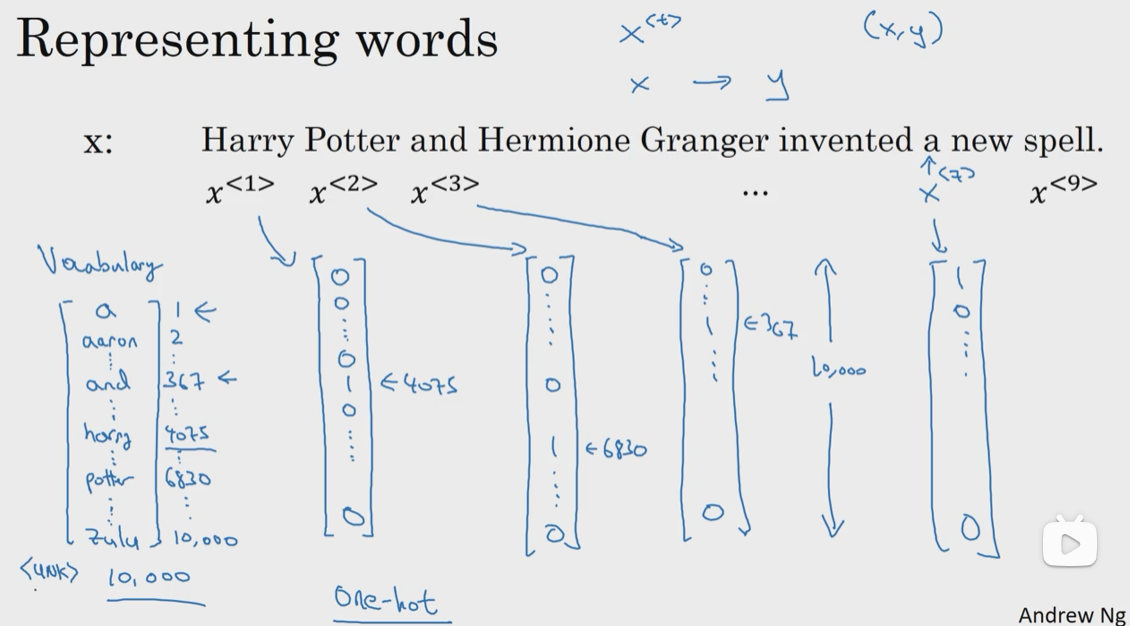 Representing words
x<t>
(x,y)
x → y
x: Harry Potter and Hermione Granger invented a new spell.
x<1> x<2> x<3> ... x<7> x<9>
Vocabulary
a 1 ←
aaron 2
and 367 ←
harry 4075
potter 6830
zulu 10,000
<UNK> 10,000
0
0
0
1 ←4075
0
0
0
0
1 ←6830
0
0
1 ←367
0
10,000
1
0
0
One-hot
Andrew Ng